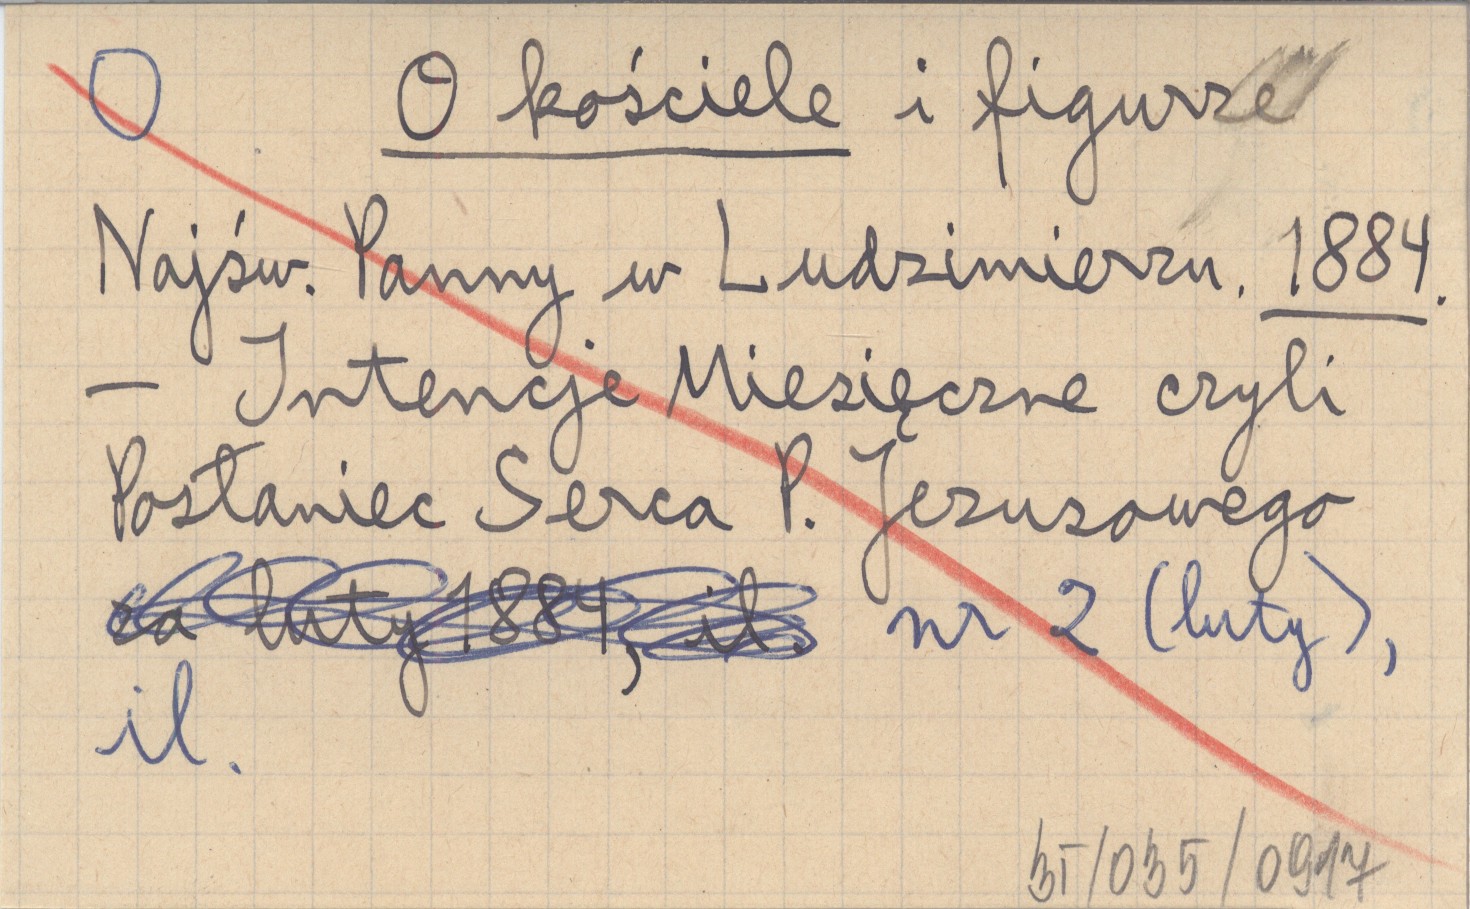 O O kościele i figurze
Najśw. Panny w Ludzimierzu. 1884.
— Intencje Miesięczne czyli
Posłaniec Serca P. Jezusowego
za luty 1884, il. nr 2 (luty),
il.
3T/035/0917